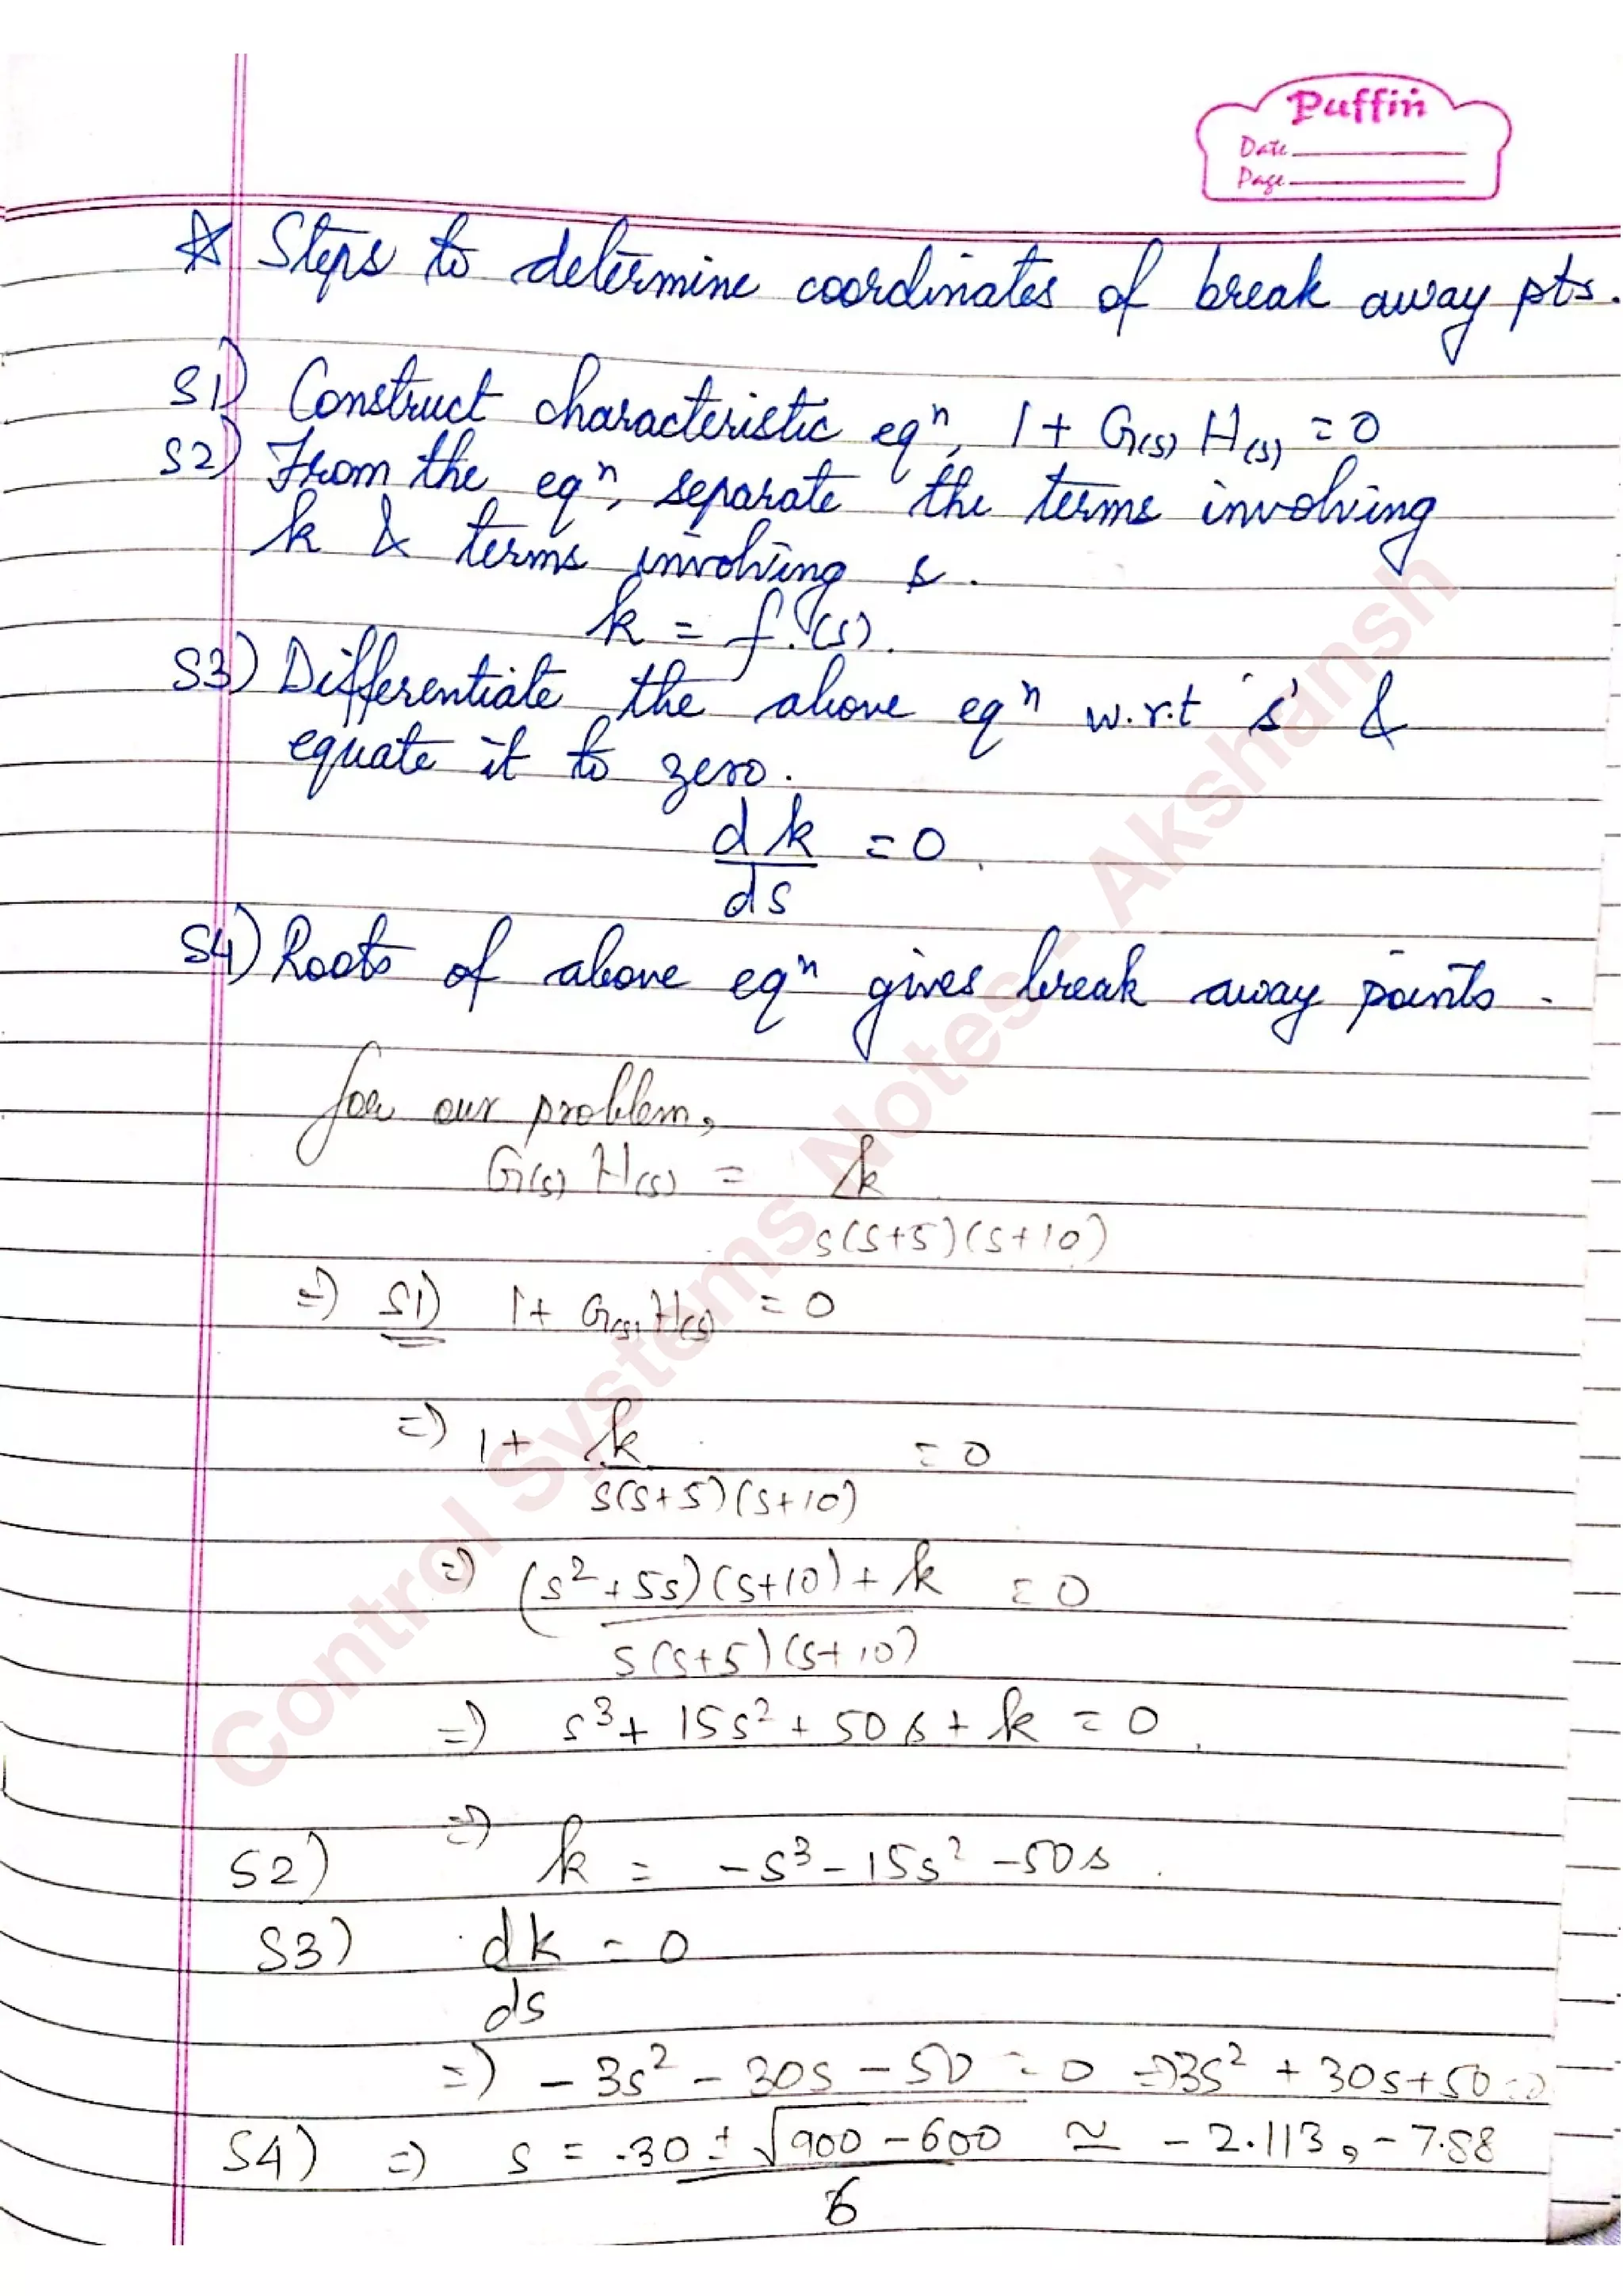 Puffin
Date
Page
☆ Steps to determine coordinates of break away pts.
S1) Construct characteristic eqⁿ, 1 + G(s) H(s) = 0
S2) From the eqⁿ, separate the terms involving
k & terms involving s.
k = f(s).
S3) Differentiate the above eqⁿ w.r.t 's' &
equate it to zero.
dk/ds = 0.
S4) Roots of above eqⁿ gives break away points.
for our problem,
G(s) H(s) = k
s(s+5)(s+10)
=) S1) 1 + G(s) H(s) = 0
=) 1 + k = 0
s(s+5)(s+10)
=) (s²+5s)(s+10) + k = 0
s(s+5)(s+10)
=) s³ + 15s² + 50s + k = 0.
S2) =) k = -s³ - 15s² - 50s.
S3) dk = 0
ds
=) -3s² - 30s - 50 = 0 =) 3s² + 30s + 50 = 0
S4) =) s = -30 ± √900 - 600 ≃ -2.113, -7.88
6
Control Systems Notes - Akshansh